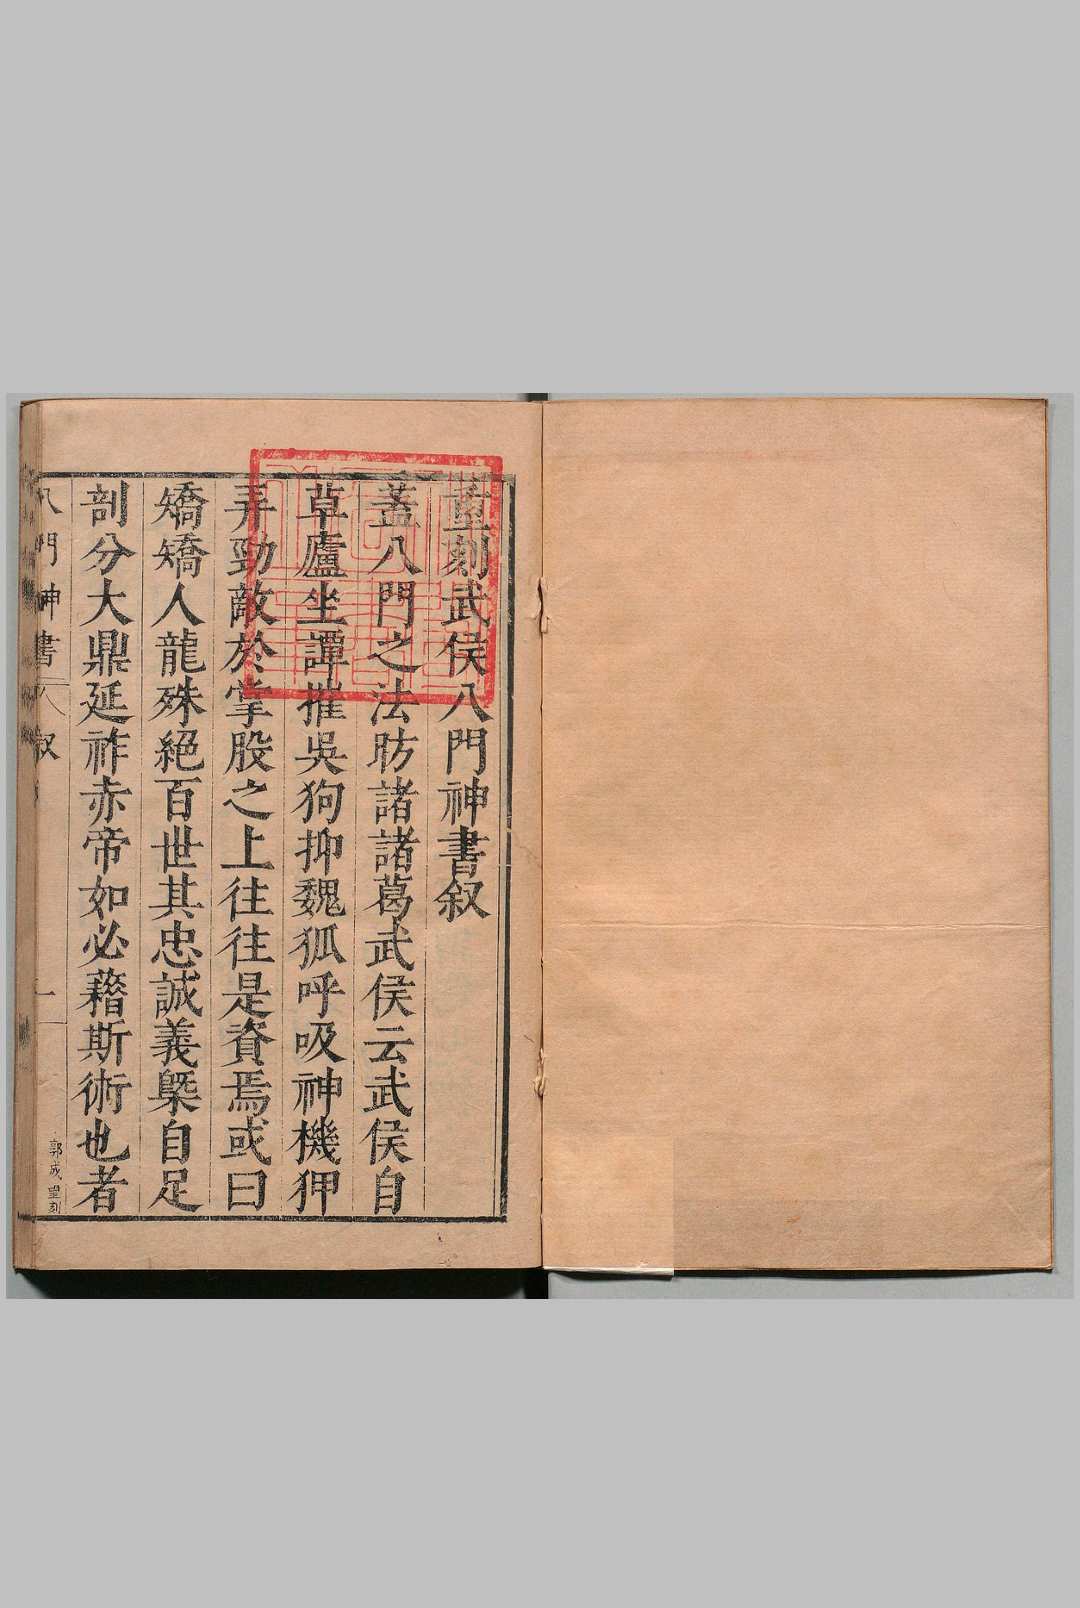 重刻武侯八門神書叙
蓋八門之法昉諸諸葛武侯云武侯自
草廬坐譚摧吳狗抑魏狐呼吸神機狎
弄勁敵於掌股之上往往是資焉或曰
矯矯人龍殊絕百世其忠誠義槩自足
剖分大鼎延祚赤帝如必藉斯術也者
八門神書
叙
一
郭成望刻